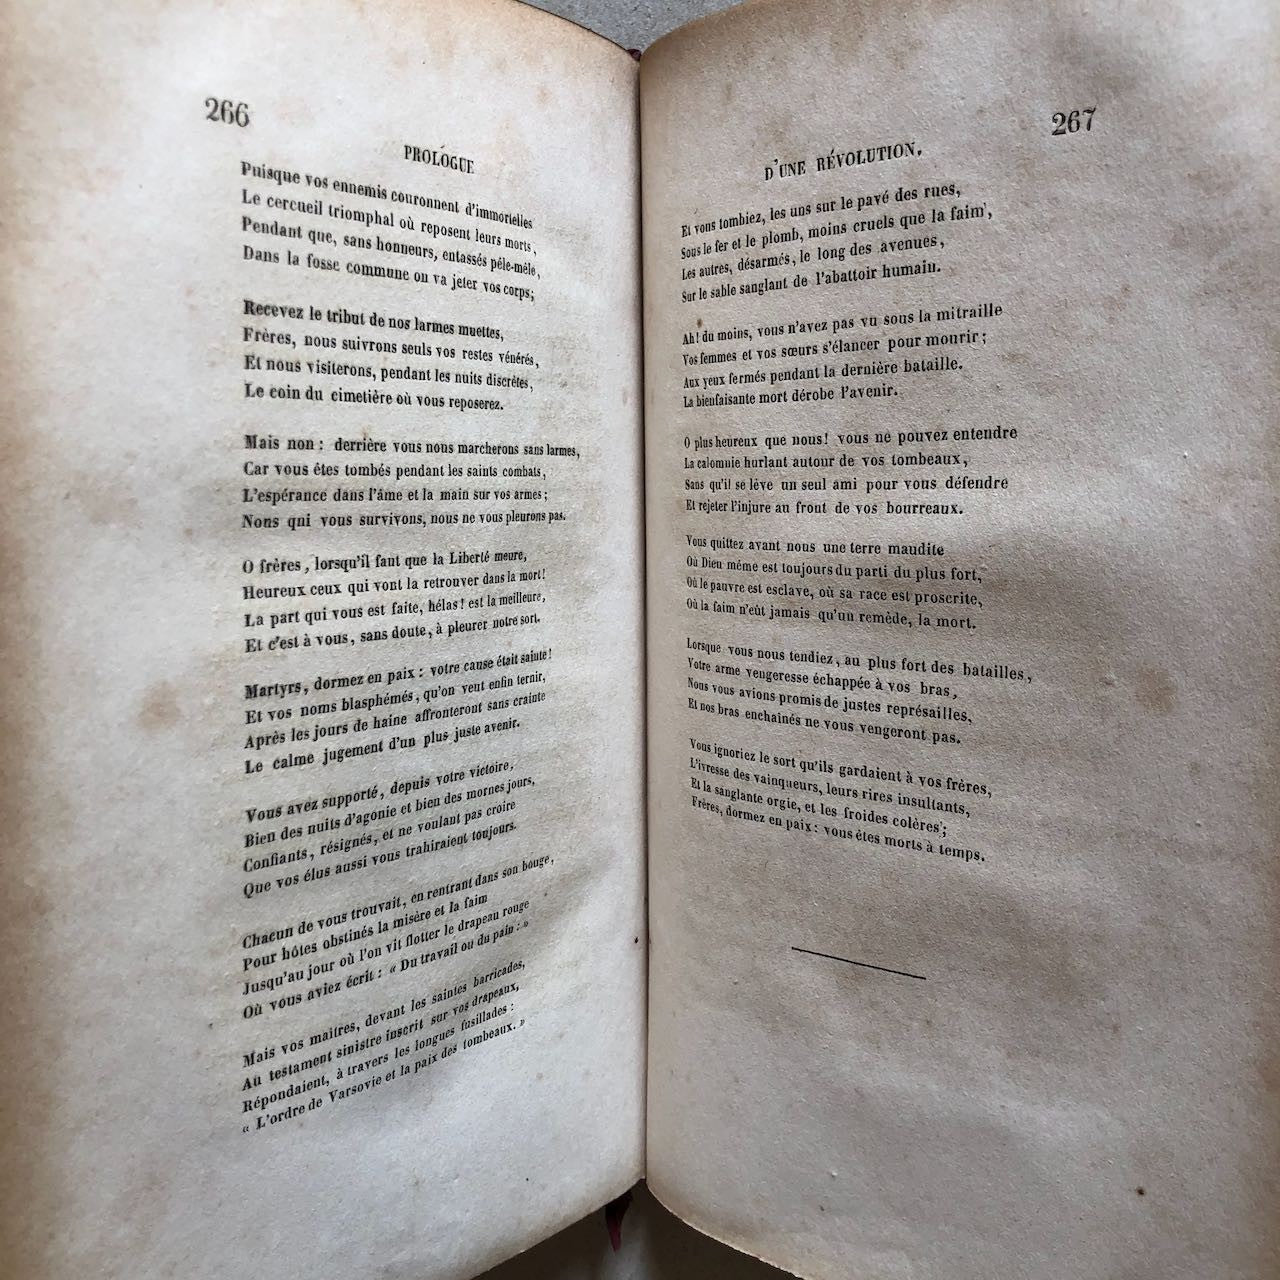 266
PROLOGUE
Puisque vos ennemis couronnent d'immortelles
Le cercueil triomphal où reposent leurs morts,
Pendant que, sans honneurs, entassés pêle-mêle,
Dans la fosse commune on va jeter vos corps;
Recevez le tribut de nos larmes muettes,
Frères, nous suivrons seuls vos restes vénérés,
Et nous visiterons, pendant les nuits discrètes,
Le coin du cimetière où vous reposerez.
Mais non: derrière vous nous marcherons sans larmes,
Car vous êtes tombés pendant les saints combats,
L'espérance dans l'âme et la main sur vos armes;
Nous qui vous survivons, nous ne vous pleurons pas.
O frères, lorsqu'il faut que la Liberté meure,
Heureux ceux qui vont la retrouver dans la mort!
La part qui vous est faite, hélas! est la meilleure,
Et c'est à vous, sans doute, à pleurer notre sort.
Martyrs, dormez en paix: votre cause était sainte!
Et vos noms blasphémés, qu'on veut enfin ternir,
Après les jours de haine affronteront sans crainte
Le calme jugement d'un plus juste avenir.
Vous avez supporté, depuis votre victoire,
Bien des nuits d'agonie et bien des mornes jours,
Confiants, résignés, et ne voulant pas croire
Que vos élus aussi vous trahiraient toujours.
Chacun de vous trouvait, en rentrant dans son bouge,
Pour hôtes obstinés la misère et la faim
Jusqu'au jour où l'on vit flotter le drapeau rouge
Où vous aviez écrit: « Du travail ou du pain: »
Mais vos maitres, devant les saintes barricades,
Au testament sinistre inscrit sur vos drapeaux,
Répondaient, à travers les longues fusillades:
« L'ordre de Varsovie et la paix des tombeaux. »
267
D'UNE RÉVOLUTION.
Et vous tombiez, les uns sur le pavé des rues,
Sous le fer et le plomb, moins cruels que la faim,
Les autres, désarmés, le long des avenues,
Sur le sable sanglant de l'abattoir humain.
Ah! du moins, vous n'avez pas vu sous la mitraille
Vos femmes et vos sœurs s'élancer pour mourir;
Aux yeux fermés pendant la dernière bataille.
La bienfaisante mort dérobe l'avenir.
O plus heureux que nous! vous ne pouvez entendre
La calomnie hurlant autour de vos tombeaux,
Sans qu'il se lève un seul ami pour vous défendre
Et rejeter l'injure au front de vos bourreaux.
Vous quittez avant nous une terre maudite
Où Dieu même est toujours du parti du plus fort,
Où le pauvre est esclave, où sa race est proscrite,
Où la faim n'eût jamais qu'un remède, la mort.
Lorsque vous nous tendiez, au plus fort des batailles,
Votre arme vengeresse échappée à vos bras,
Nous vous avions promis de justes représailles,
Et nos bras enchainés ne vous vengeront pas.
Vous ignoriez le sort qu'ils gardaient à vos frères,
L'ivresse des vainqueurs, leurs rires insultants,
Et la sanglante orgie, et les froides colères;
Frères, dormez en paix: vous êtes morts à temps.